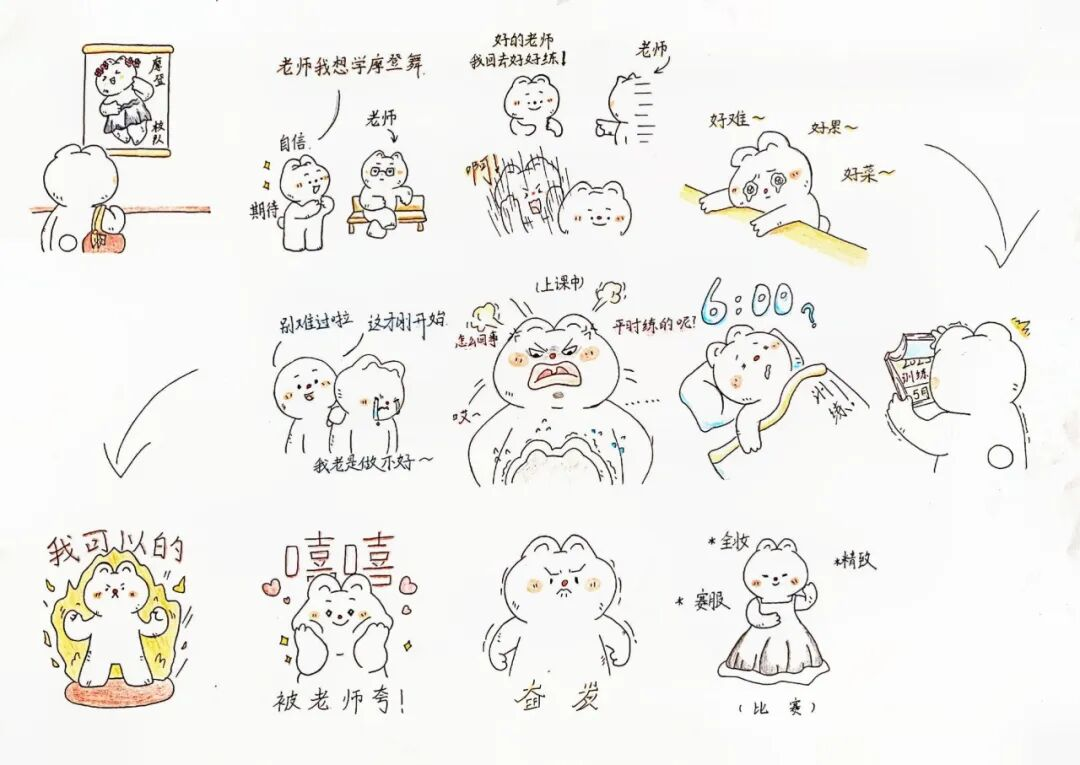 摩登
校队
老师我想学摩登舞
自信
期待
老师
好的老师
我回去好好练!
老师
啊!
好难~
好累~
好菜~
训练
5月
6:00?
训练!
(上课中)
怎么回事
平时练的呢?
哎~
……
别难过啦
这才刚开始
我老是做不好~
我可以的
嘻嘻
被老师夸!
奋发
*全妆
*精致
*赛服
(比赛)